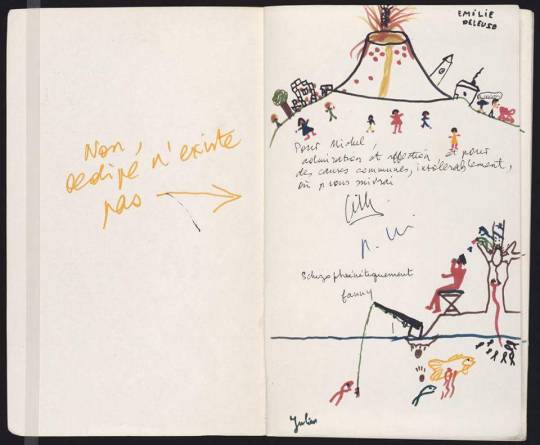 Non,
Oedipe n'existe
pas
EMILIE
DELEUSE
Pour Michel,
admiration et affection et pour
des causes communes, intolérablement,
Gilles
Schizophréniquement
fanny
Julien